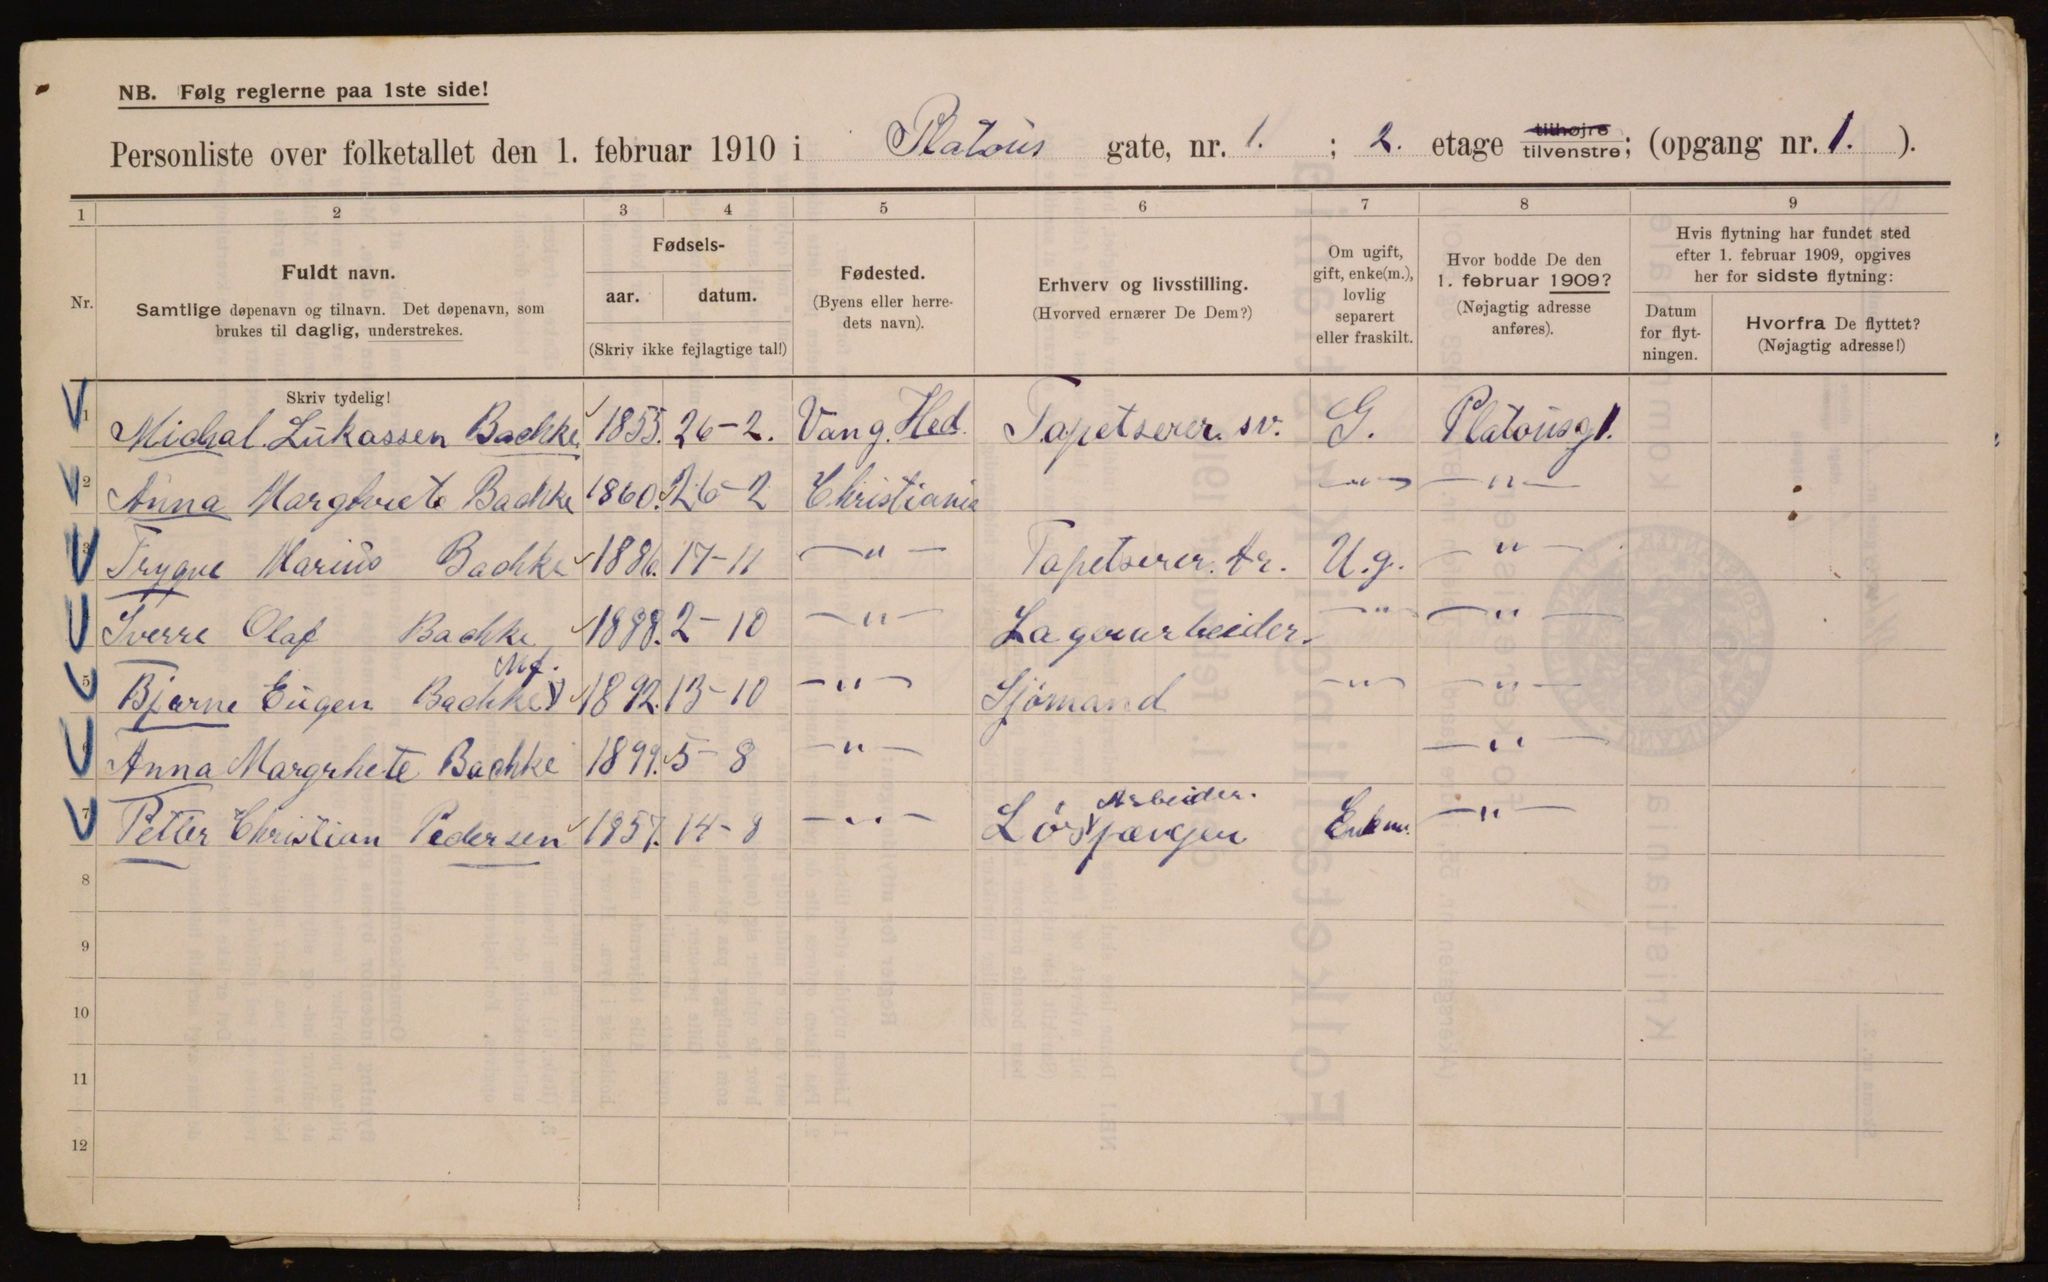 NB. Følg reglerne paa 1ste side!
Personliste over folketallet den 1. februar 1910 i Platous gate, nr. 1. ; 2. etage tilhøjre tilvenstre; (opgang nr. 1. ).
1 2 3 4 5 6 7 8 9
Nr.
Fuldt navn.
Samtlige døpenavn og tilnavn. Det døpenavn, som
brukes til daglig, understrekes.
Skriv tydelig!
Fødsels-
aar. datum.
(Skriv ikke fejlagtige tal!)
Fødested.
(Byens eller herre-
dets navn).
Erhverv og livsstilling.
(Hvorved ernærer De Dem?)
Om ugift,
gift, enke(m.),
lovlig
separert
eller fraskilt.
Hvor bodde De den
1. februar 1909?
(Nøjagtig adresse
anføres).
Hvis flytning har fundet sted
efter 1. februar 1909, opgives
her for sidste flytning:
Datum
for flyt-
ningen.
Hvorfra De flyttet?
(Nøjagtig adresse!)
1 Michal Lukassen Bachke 1855. 26-2. Vang. Hed. Tapetserer. sv. G. Platousg 1.
2 Anna Margrete Bachke 1860. 26-2 Christiania —"— —"—
3 Trygve Marius Bachke 1886. 17-11 —"— Tapetserer. Ar. U.g. —"—
4 Sverre Olaf Bachke 1888. 2-10 —"— Lagerarbeider. —"— —"—
5 Bjarne Eugen Bachke Mf. 1892. 13-10 —"— Sjømand —"— —"—
6 Anna Margrhete Bachke 1899. 5-8 —"— —"—
7 Petter Christian Pedersen 1857. 14-8 —"— Løs Arbeider. Enkem. —"—
8
9
10
11
12